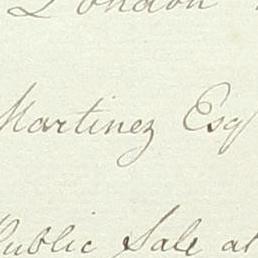 London
Martinez Esq
Public Sale at